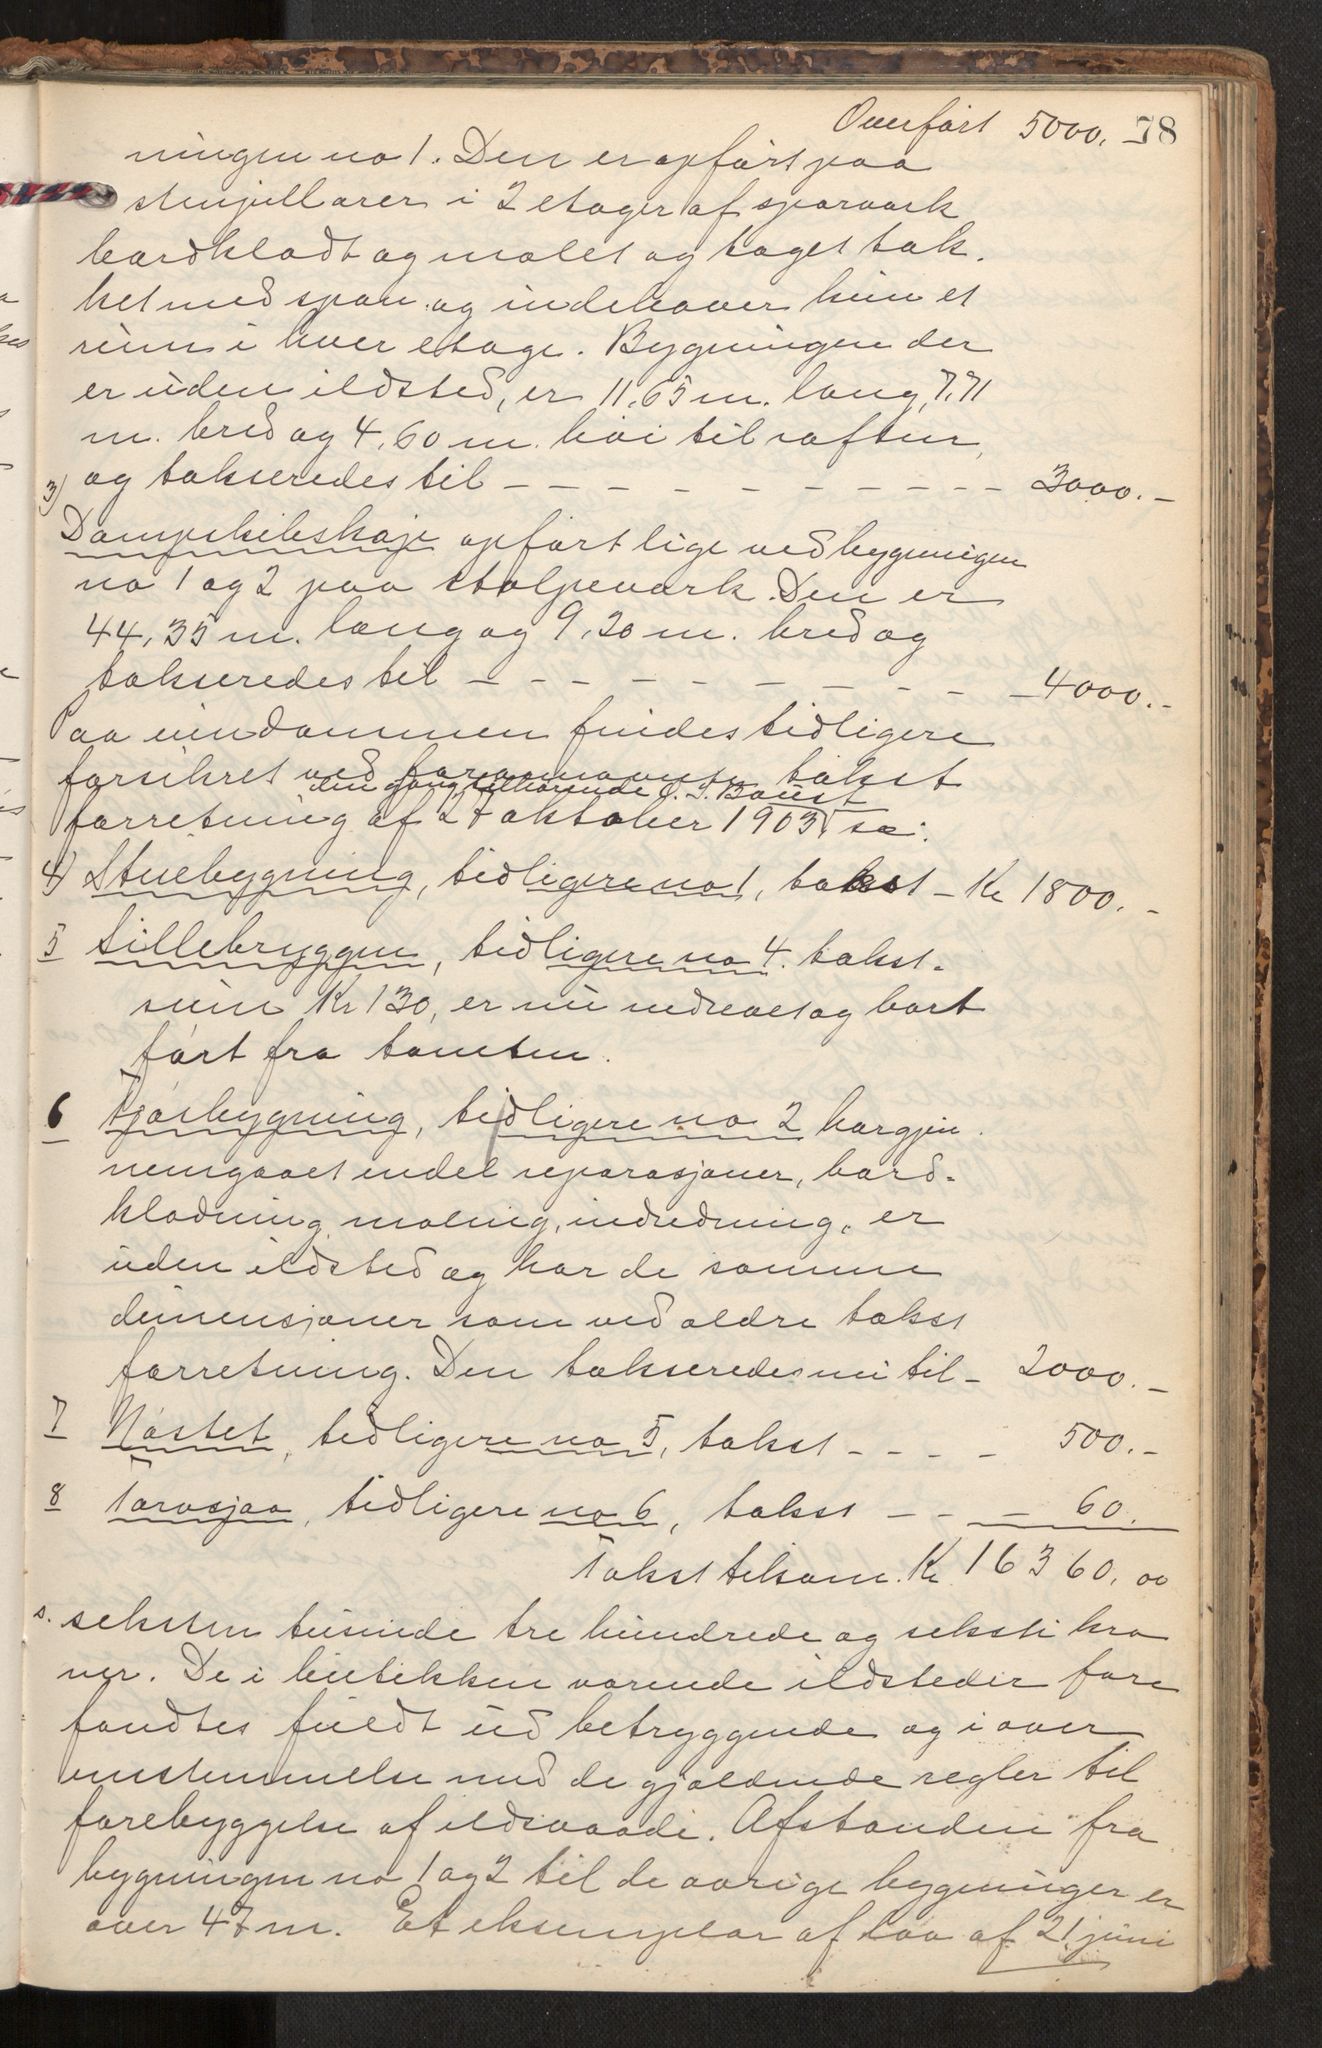 Overført 5000. 78
ningen no 1. Den er opført paa
stenpillarer i 2 etager af sparværk
bordklædt og malet og taget tæk-
ket med spon og indehaver kun et
rum i hver etage. Bygningen der
er uden ildsted, er 11,65 m. lang, 7,71
m. bred og 4,60 m. høi til raften,
og takseredes til - - - - - - - - - - 3000.-
3) Dampskibskaje opført lige ved bygningen
no 1 og 2 paa stolpeværk. Den er
44,35 m. lang og 9,20 m. bred og
takseredes til - - - - - - - - - - 4000.-
Paa eiendommen findes tidligere
forsikret ved takst
den gang tilhørende J. S. Baust
forretning af oktober 1903 sa:
4) Stuebygning, tidligere no 1, takst - Kr 1800.-
5 Lillebryggen, tidligere no 4. takst-
sum Kr 130, er nu nedrevet og bort
ført fra tomten.
6 Fjøsbygning, tidligere no 2 har gjen
nemgaaet endel reparasjoner, bord-
klædning, maling, indredning, er
uden ildsted og har de samme
dimensjoner som ved ældre takst
forretning. Den takseredes nu til - 2000.-
7 Nøstet, tidligere no 5, takst - - - - 500.-
8 Torvsjaa, tidligere no 6, takst - - - 60.
Takst tilsam. Kr 16360,00
s. seksten tusinde tre hundrede og seksti kro
ner. De i butikken værende ildsteder fore
fandtes fuldt ud betryggende og i over
ensstemmelse med de gjældende regler til
forebyggelse af ildsvaade. Afstanden fra
bygningen no 1 og 2 til de øvrige bygninger er
over 47 m. Et eksemplar af lov af 21 juni